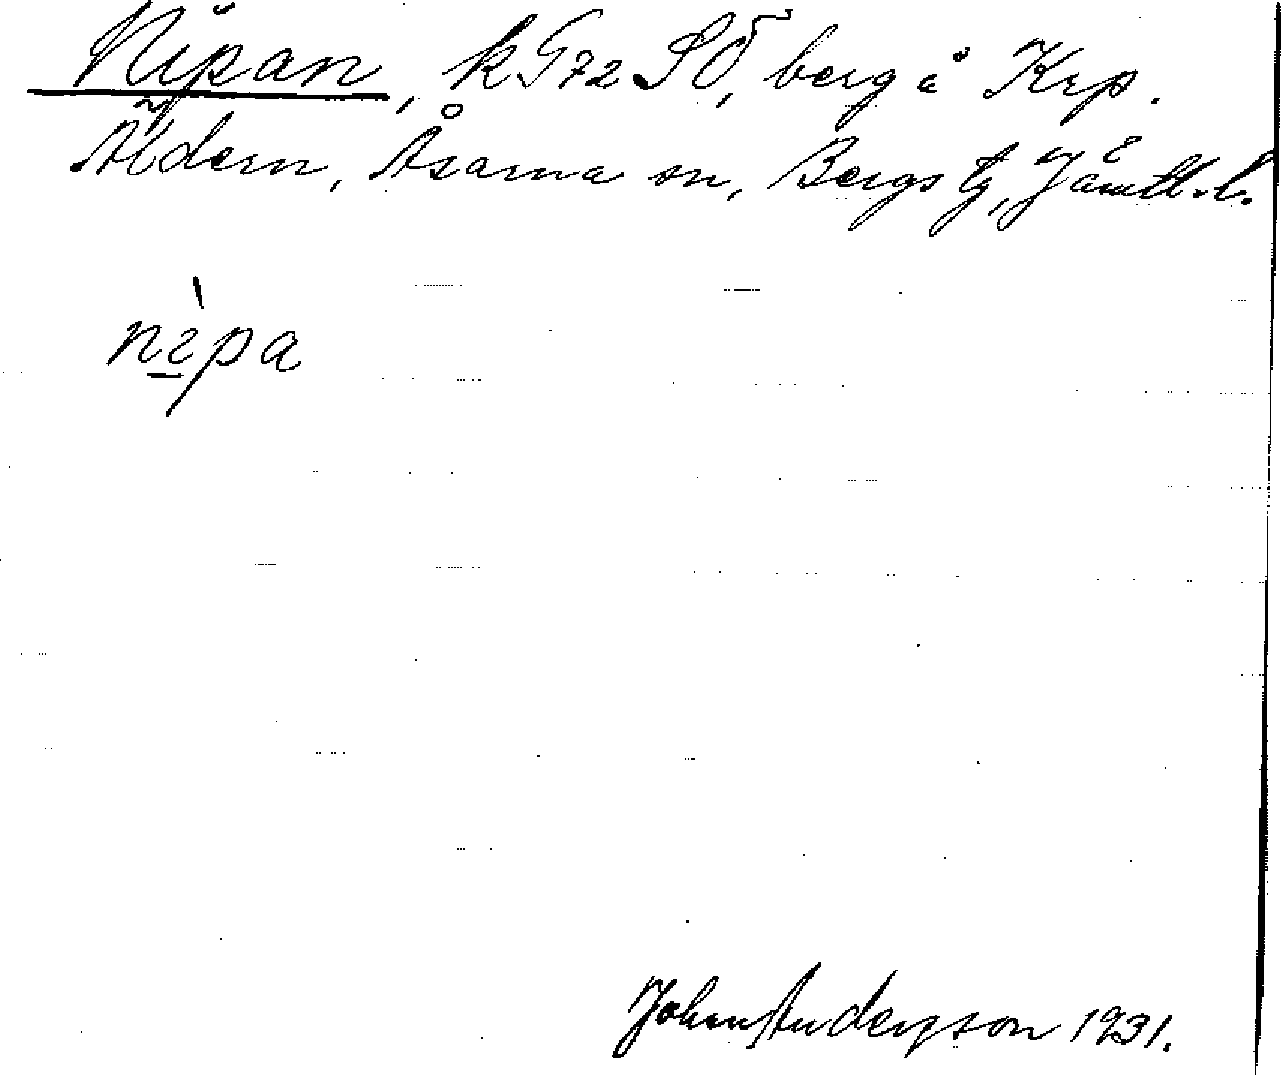 Nipan, k G72 SÖ, berg å Krp.
Äldern, Åsarna sn, Bergs tg, Jämtl. l.
nìpa
Johan Anderson 1931.